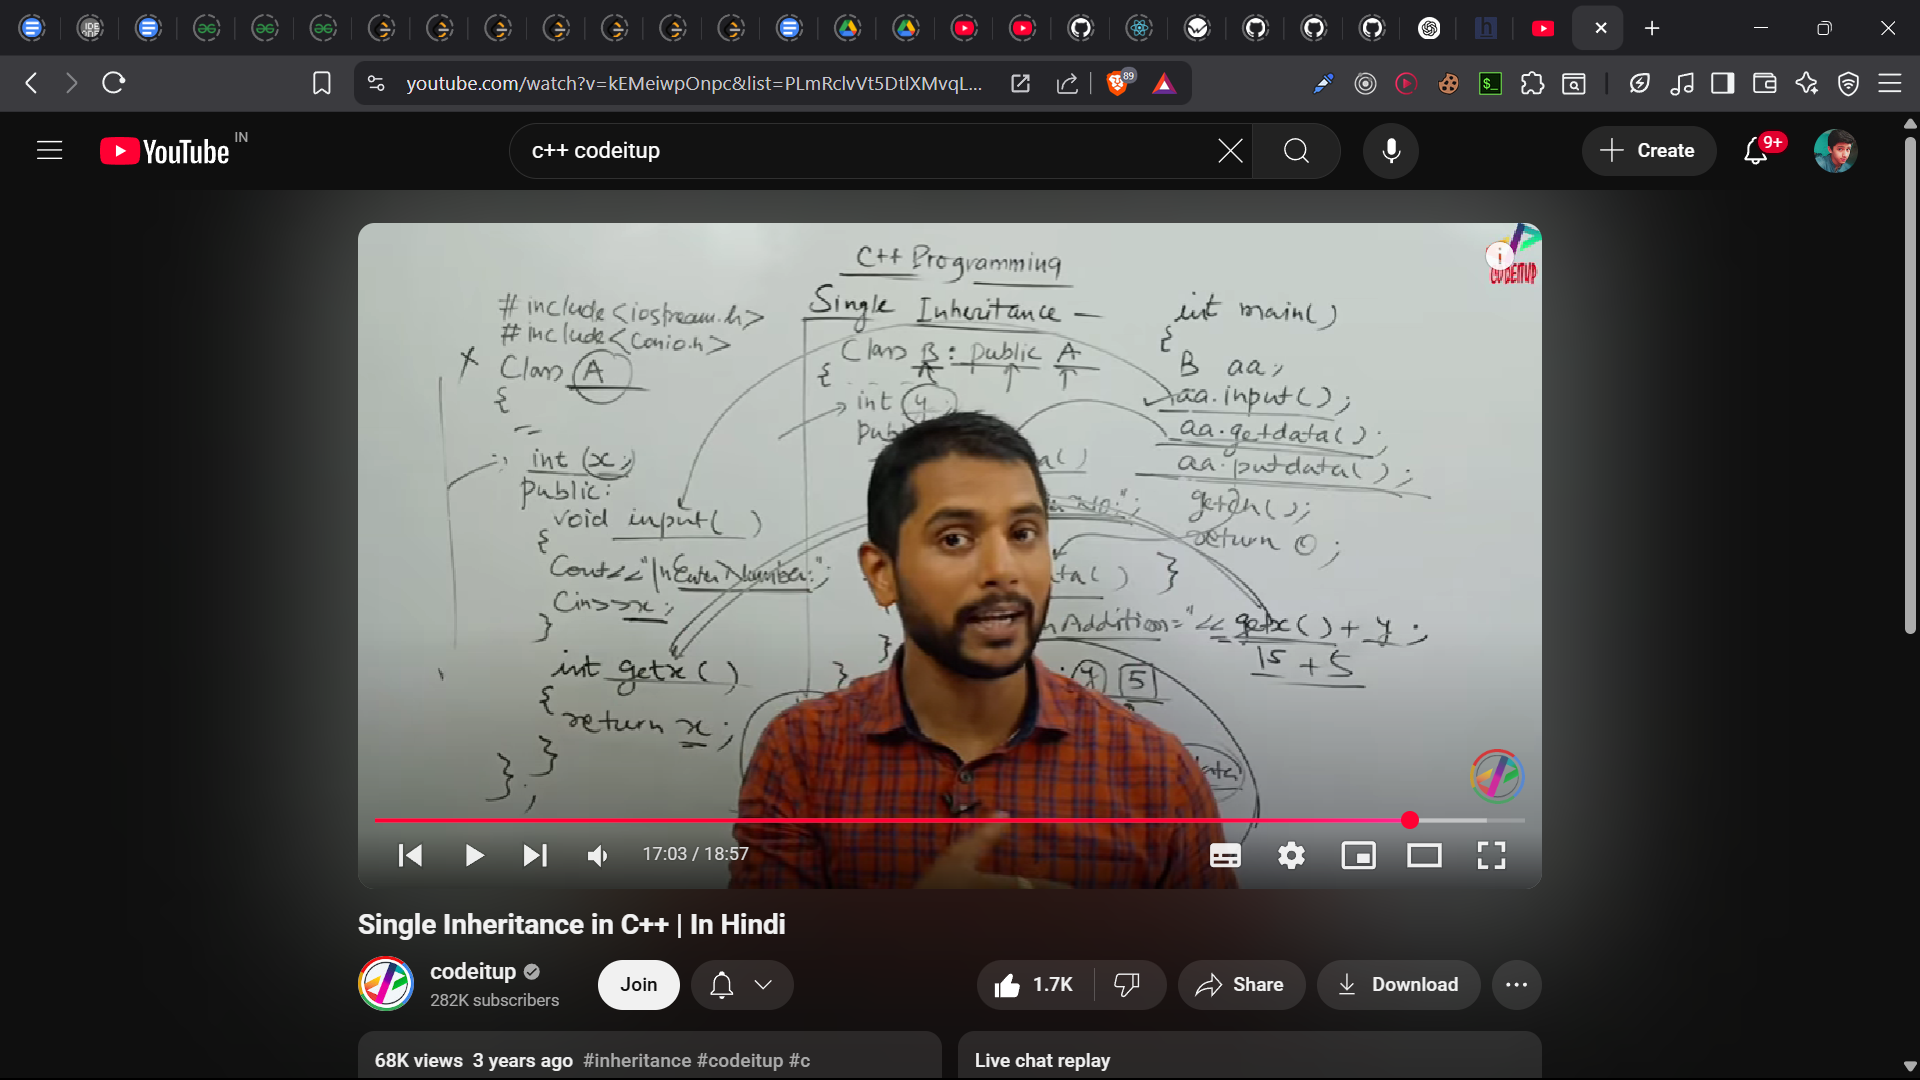 youtube.com/watch?v=kEMeiwpOnpc&list=PLmRclvVt5DtlXMvqL...
89
YouTube
IN
c++ codeitup
Create
9+
C++ Programming
CODEITUP
# include<iostream.h>
# include<conio.h>
Class A
{
int x;
public:
void input( )
{
Cout<<"\nEnter Number:";
Cin>>x;
}
int getx( )
{
return x;
}
};
Single Inheritance
Class B : public A
{
int y;
}
"<< getx( ) + y ;
Addition="
15 + 5
y 5
int main( )
{
B aa;
aa.input( );
aa.getdata( );
aa.putdata( );
getch( );
return 0 ;
}
17:03 / 18:57
Single Inheritance in C++ | In Hindi
codeitup
282K subscribers
Join
1.7K
Share
Download
68K views 3 years ago #inheritance #codeitup #c
Live chat replay